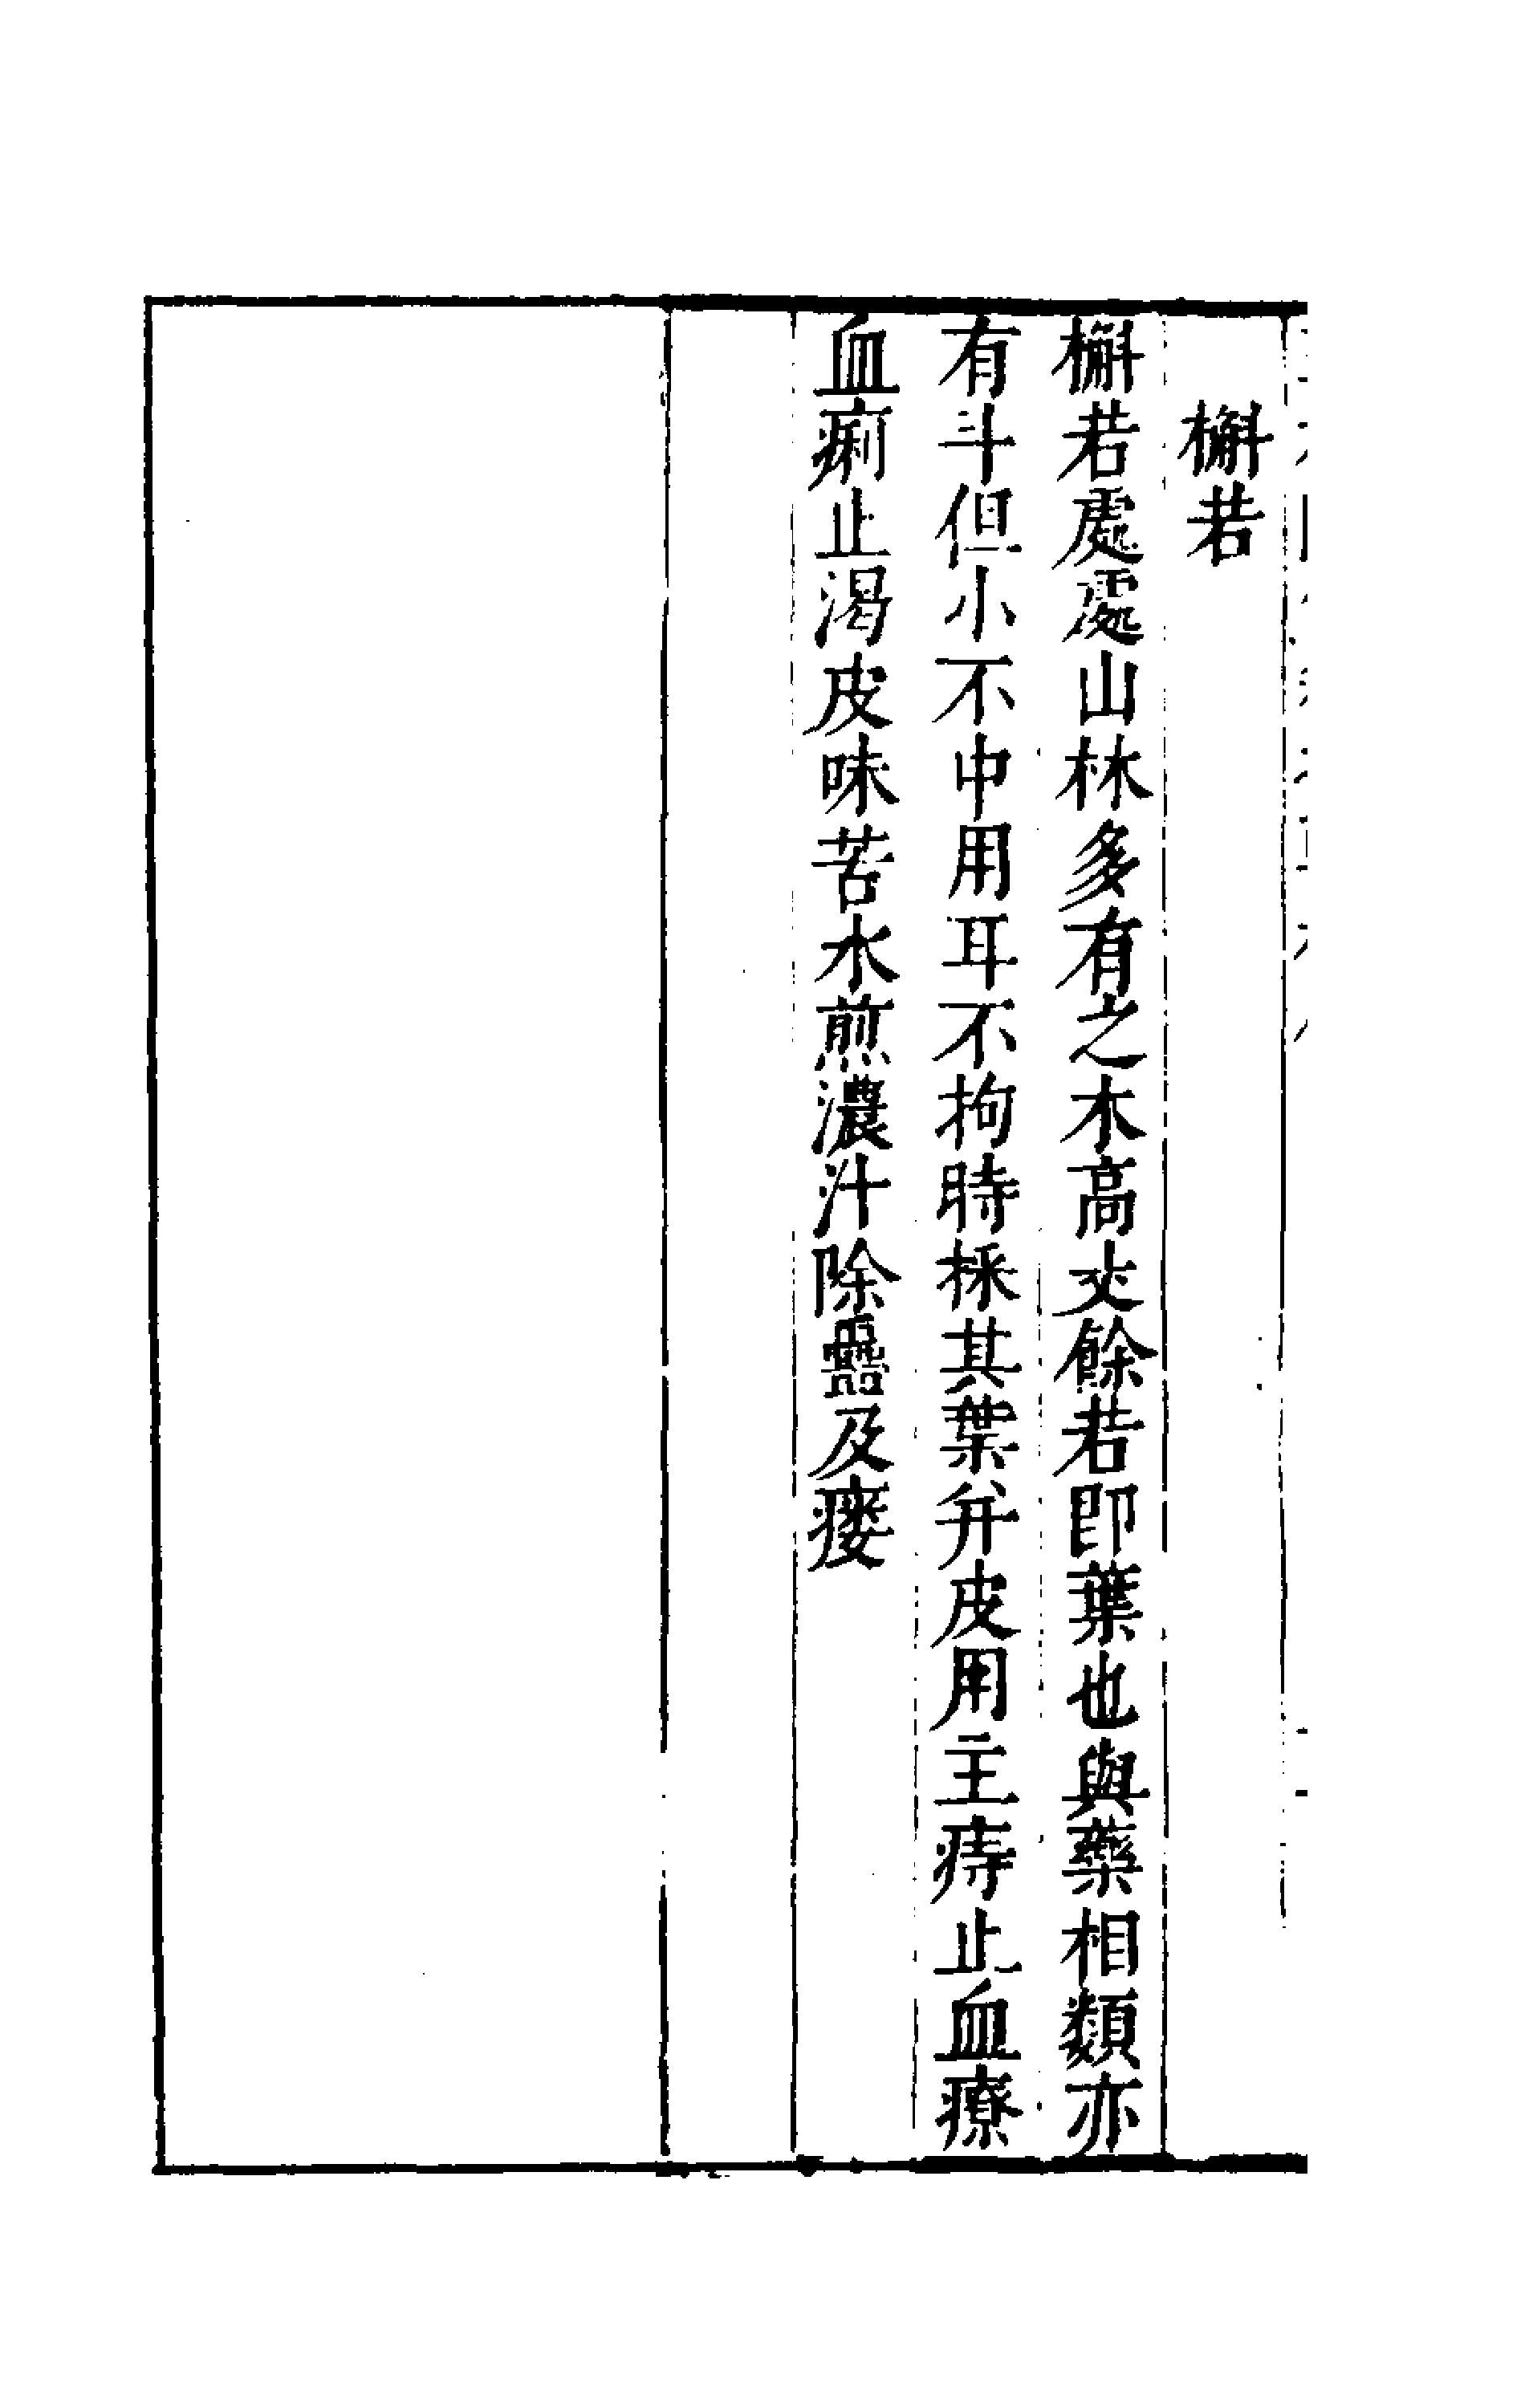 槲若
槲若處處山林多有之木高丈餘若即葉也與藥相類亦
有斗但小不中用耳不拘時採其葉并皮用主痔止血療
血痢止渴皮味苦水煎濃汁除蠱及瘻